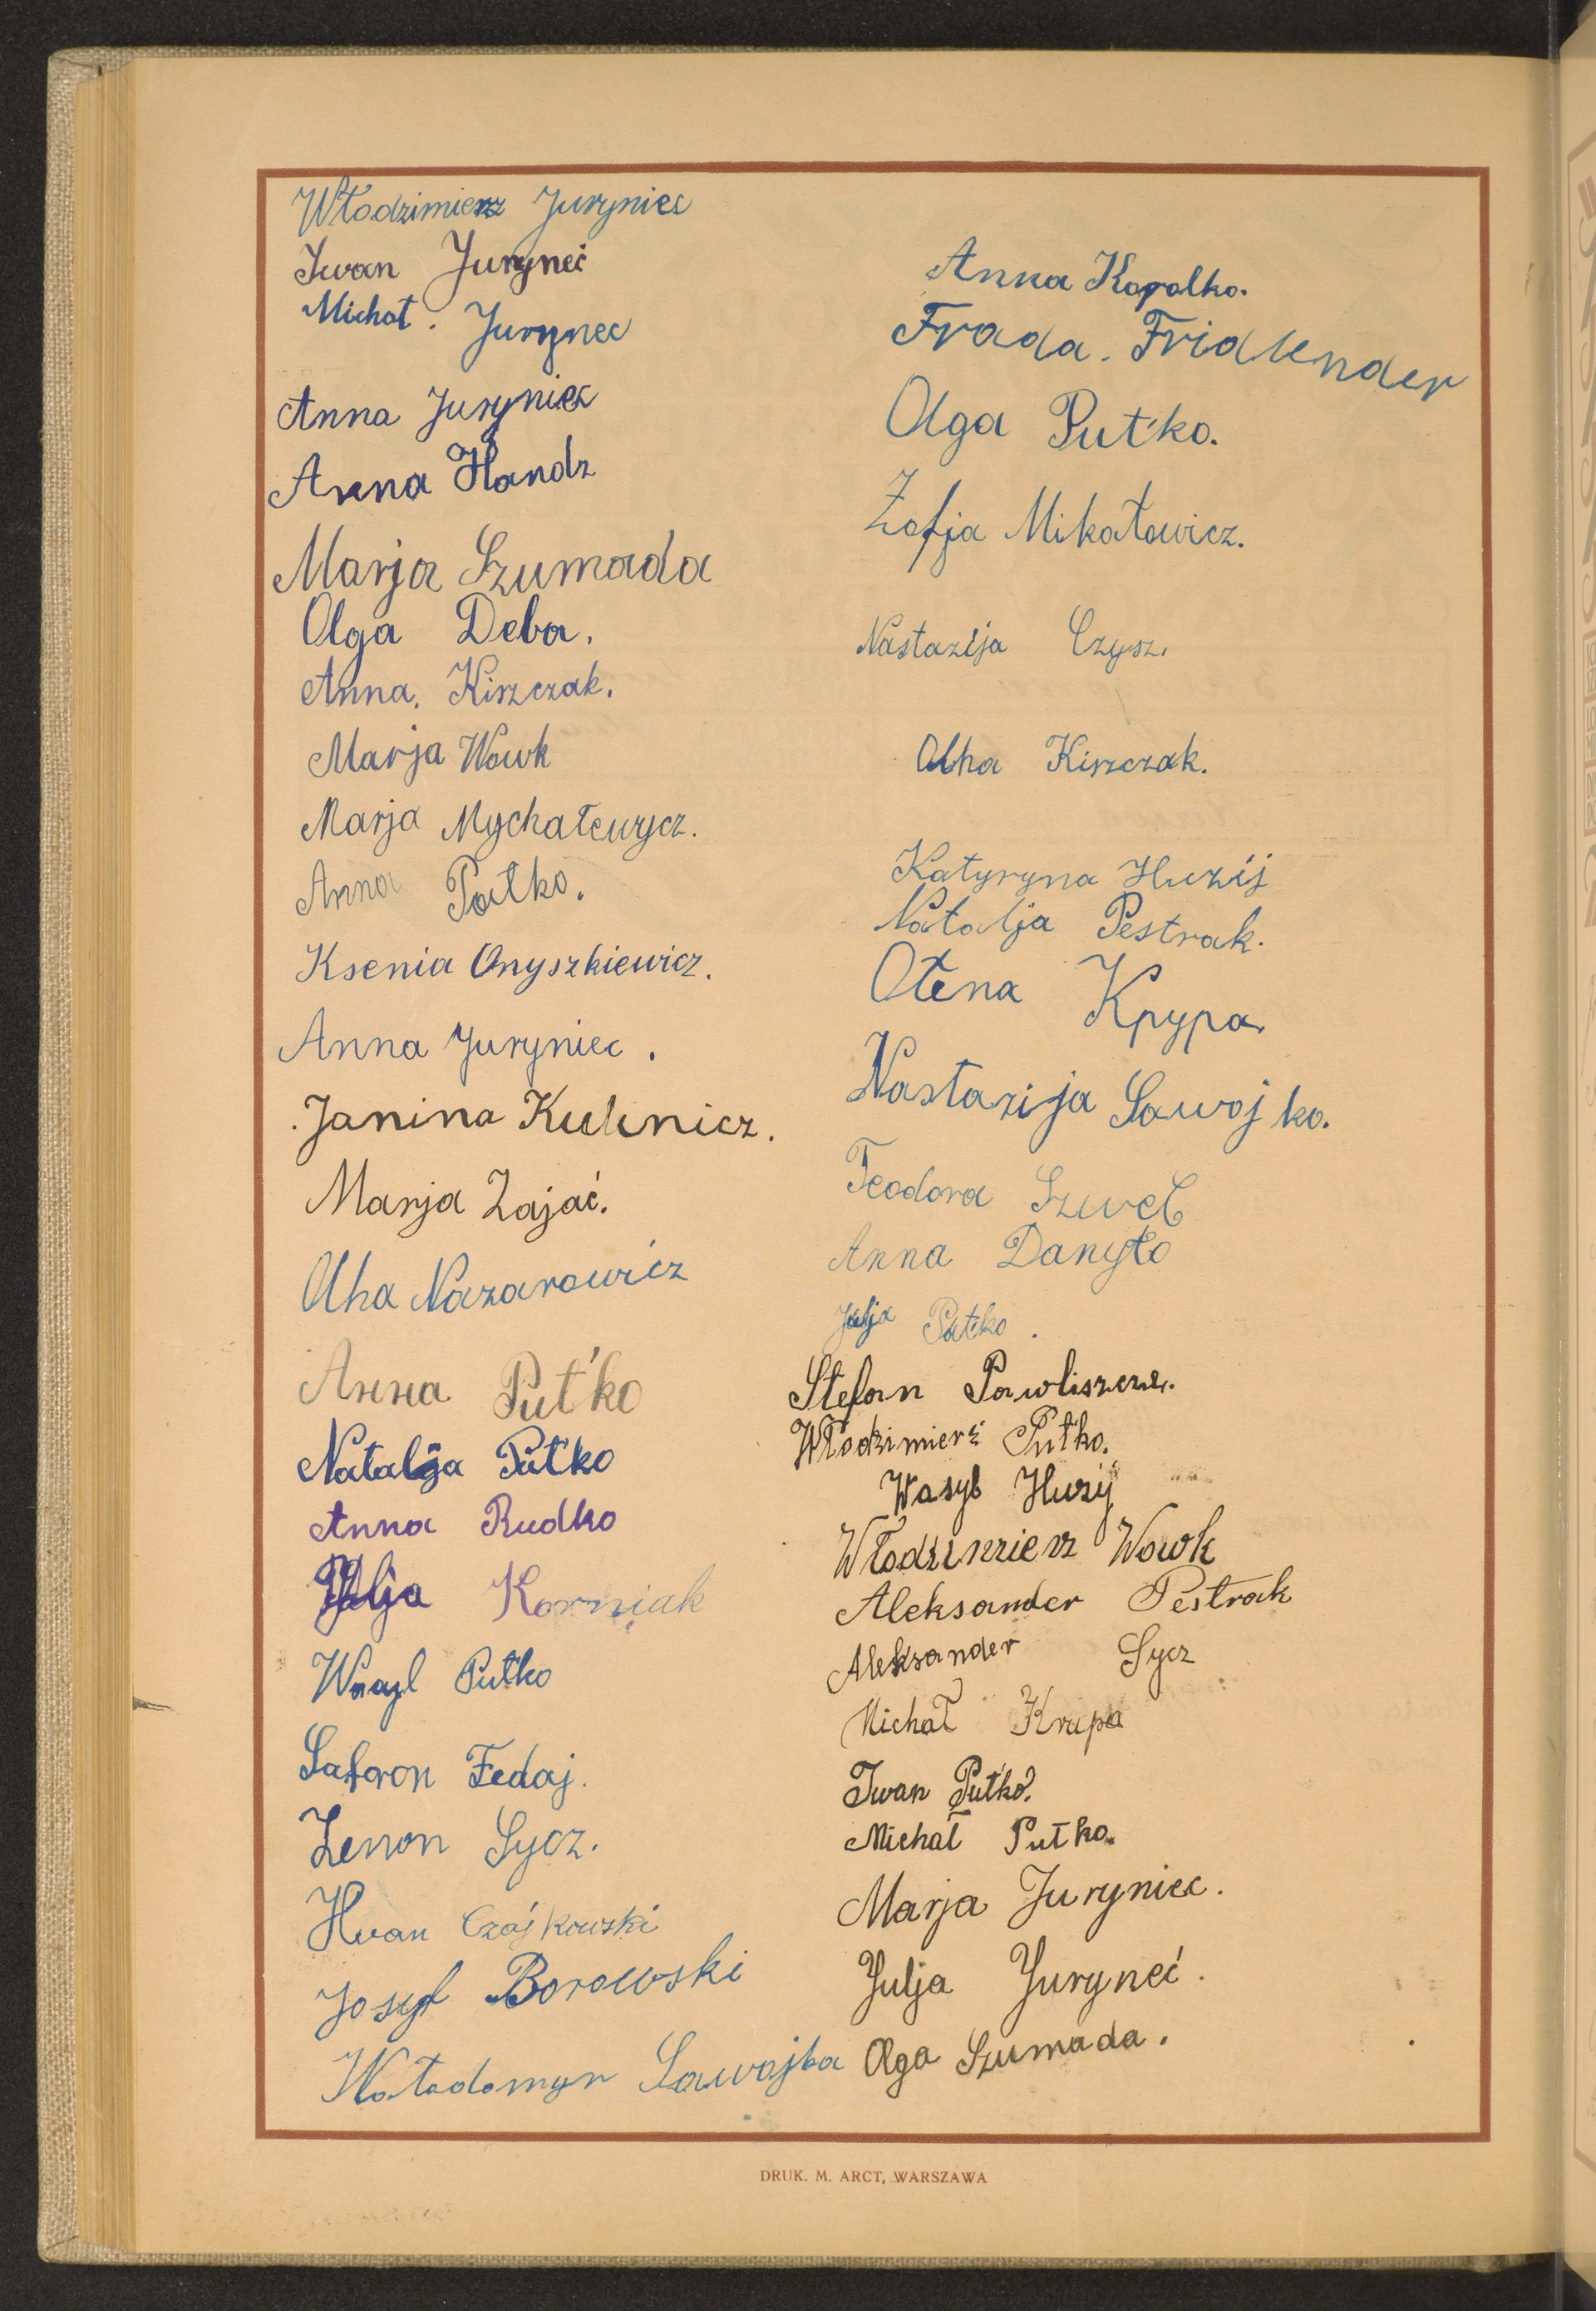 Włodzimierz Juryniec
Iwan Juryneć
Michał. Jurynec
Anna Juryniec
Anna Handz
Marja Szumada
Olga Deba.
Anna. Kiszczak.
Marja Wowk
Marja Mychałewycz.
Anna Patko.
Ksenia Onyszkiewicz.
Anna Juryniec.
Janina Kulinicz.
Marja Zajać.
Olha Nazarowicz
Anna Put'ko
Natalja Put'ko
Anna Rudko
Julja Korniak
Wasyl Putko
Safron Fedaj.
Zenon Sycz.
Iwan Czajkowski
Josyf Borowski
Wołodomyr Sawojka
Anna Kopalko.
Frada. Fridlender
Olga Put'ko.
Zofja Mikałowicz.
Nastazija Czysz.
Olha Kiszczak.
Katyryna Huzij
Natalja Pestrak.
Ołena Kpypa
Nastazija Sawojko.
Teodora Szweć
Anna Danyło
Julja Patko.
Stefan Pawliszcze.
Włodzimierz Putko.
Wasyl Huzij
Włodzimierz Wowk
Aleksander Pestrak
Aleksander Sycz
Michał Krupa
Iwan Put'ko.
Michał Putko.
Marja Juryniec.
Julja Juryneć.
Olga Szumada.
DRUK. M. ARCT, WARSZAWA